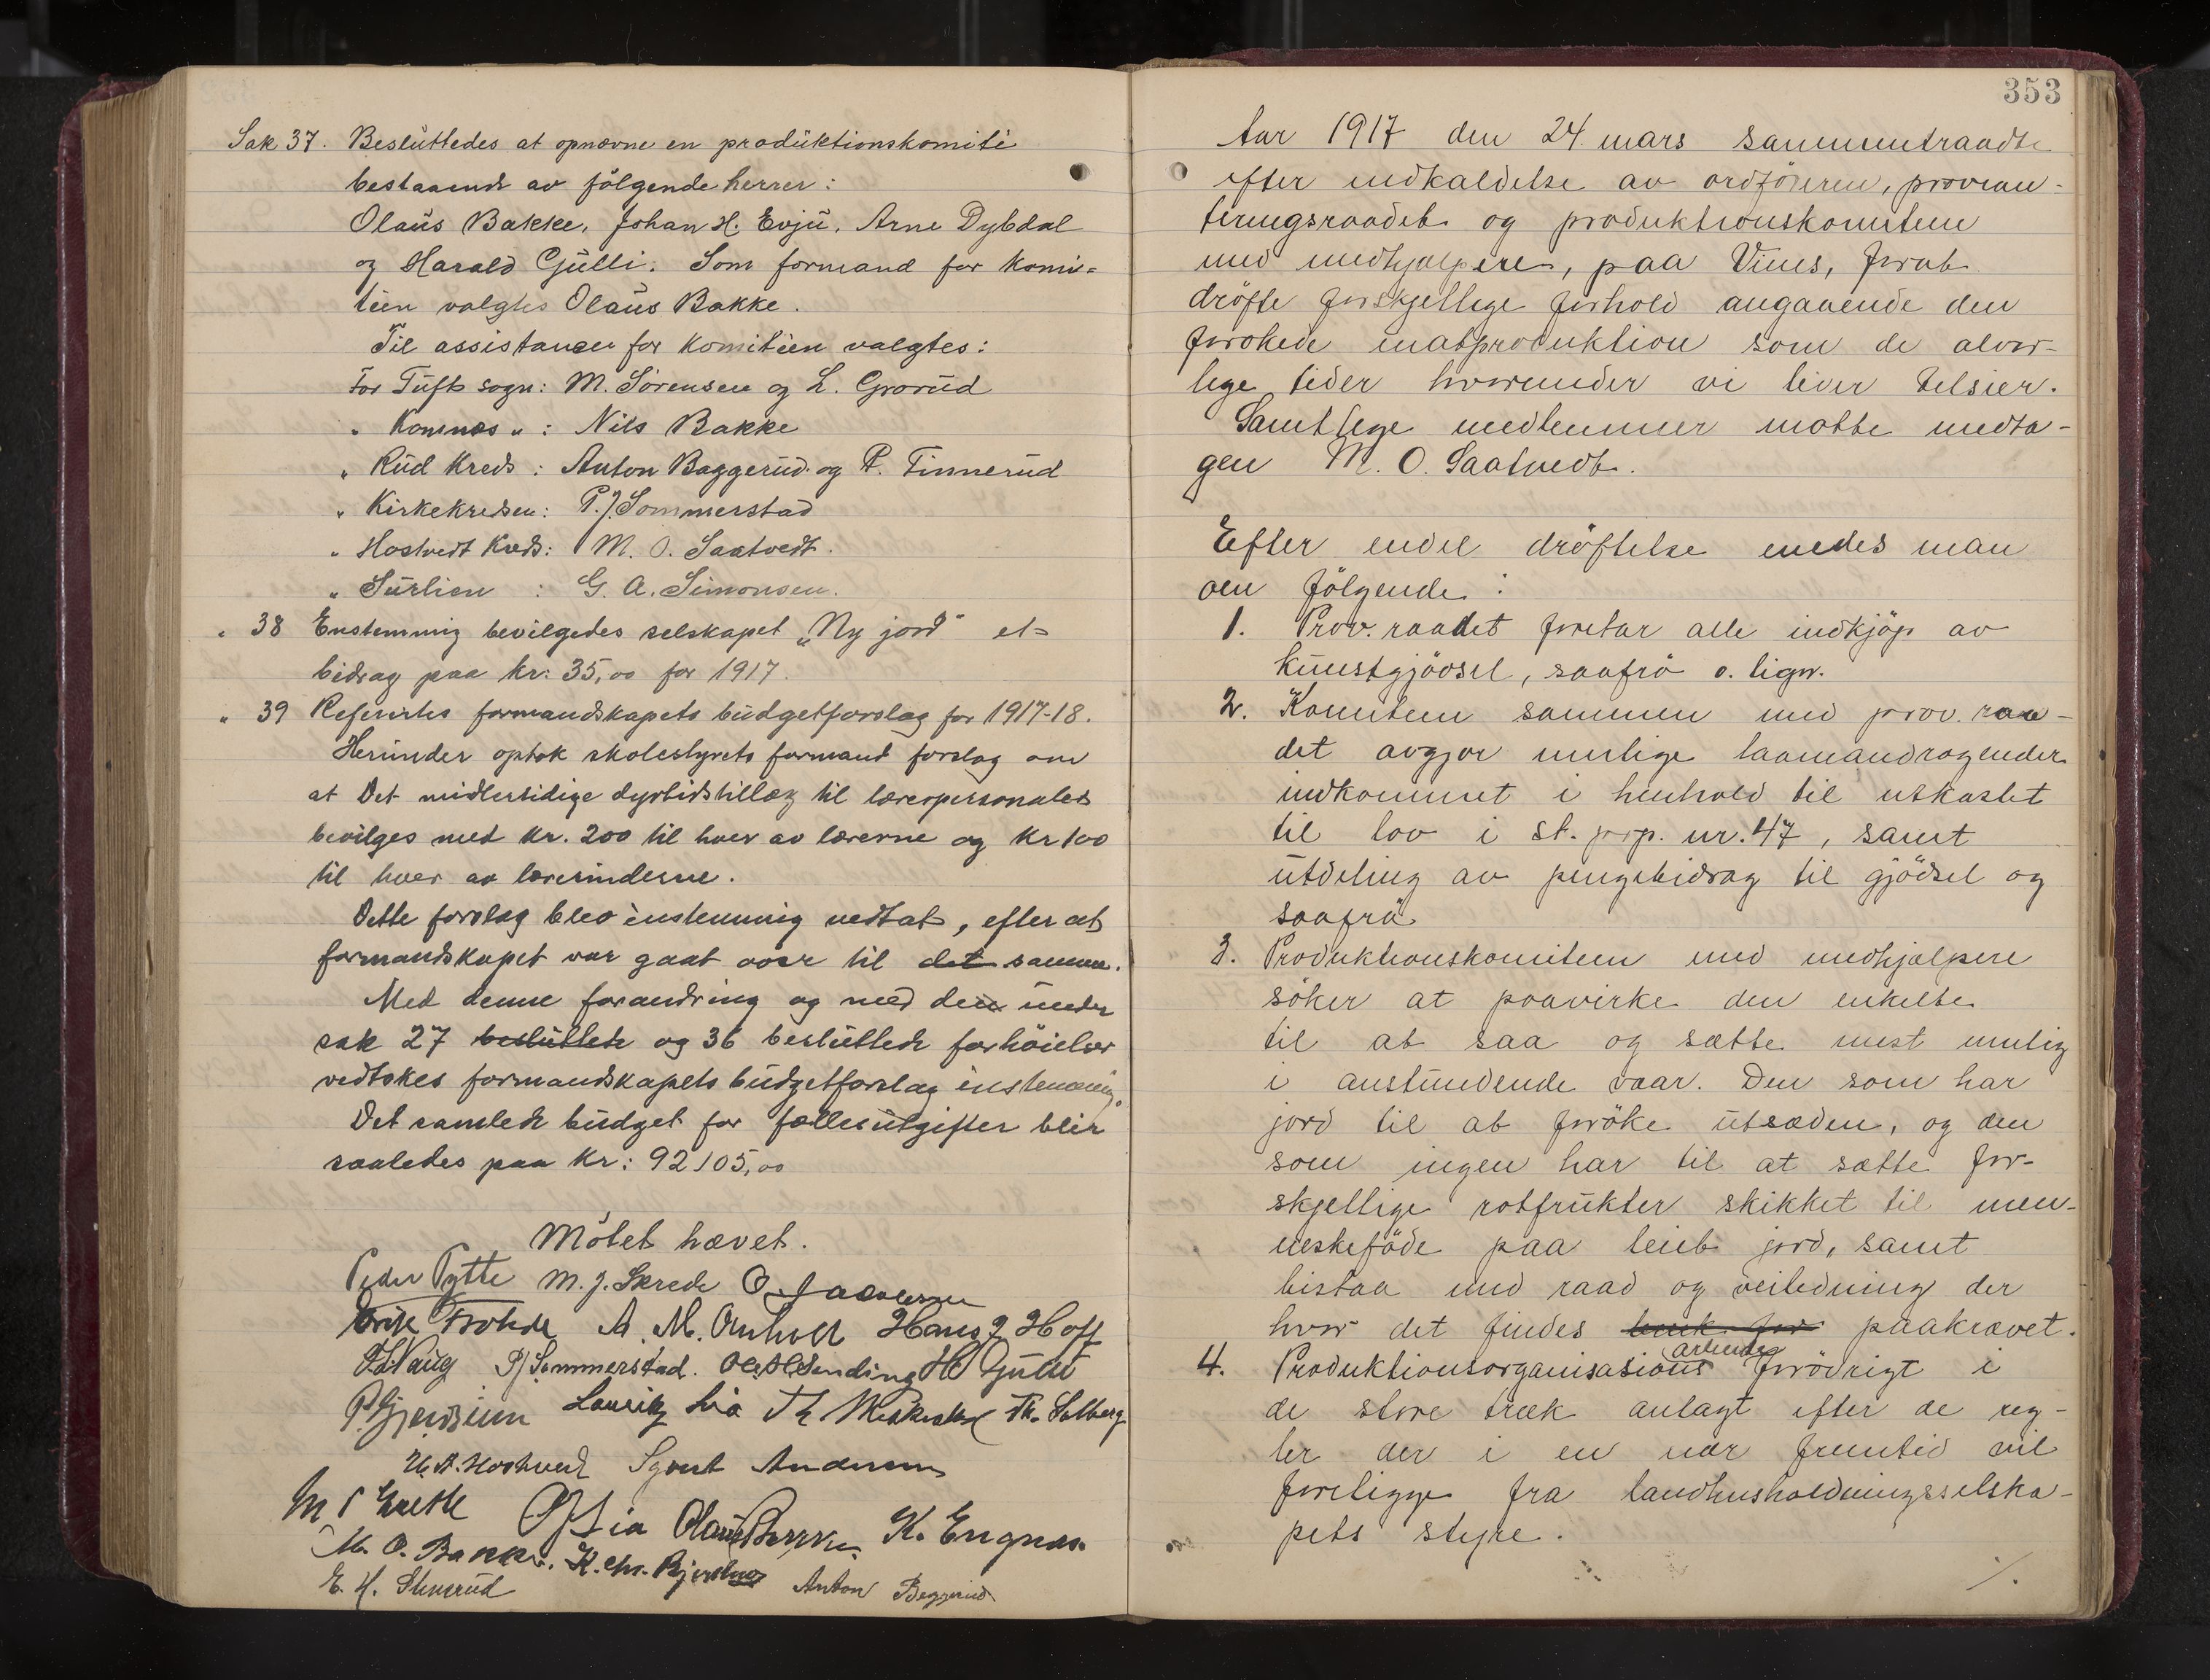 Sak 37. Besluttedes at opnævne en produktionskomité
bestaaende av følgende herrer:
Olaus Bakke, Johan H. Evju, Arne Dybdal
og Harald Gulli. Som formand for komi=
téen valgtes Olaus Bakke.
Til assistanse for komitéen valgtes:
For Tuft sogn: M. Sørensen og L. Grorud
" Komnæs " : Nils Bakke
" Rud Kreds : Anton Baggerud og P. Finnerud
" Kirkekredsen: P. J. Sommerstad
" Hostvedt Kreds: M. O. Saatvedt.
" Surlien : G. A. Simonsen.
" 38 Enstemmig bevilgedes selskapet „Ny jord" et=
bidrag paa kr: 35,00 for 1917.
" 39 Refertes formandskapets budgetforslag for 1917-18.
Herunder optok skolestyrets formand forslag om
at Det midlertidige dyrtidstillæg til lærerpersonalet
bevilges med kr. 200 til hver av lærerne og kr 100
til hver av lærerinderne.
Dette forslag blev énstemmig vedtat, efter at
formandskapet var gaat over til det samme.
Med denne forandring og med den under
sak 27 besluttede og 36 besluttede forhöielser
vedtokes formandskapets budgetforslag énstemmig.
Det samlede budget for fællesutgifter blir
saaledes paa kr: 92105,00
Mötet hævet.
Peder Pytte M. J. Skrede O. Jacobsen
A. M. Hans J. Hoff
P J Sommerstad.
Lauritz Lia Th. Solberg
H. A. Hostvedt Syvert Andersen
O J Lia K. Engnæs
M. O. Bakke. K. Chr.
Anton Baggerud
353
Aar 1917 den 24. mars sammentraadte
efter indkaldelse av ordföreren, provian-
teringsraadet og produktionskomiteen
med medhjælpere, paa Vines, for at
dröfte forskjellige forhold angaaende den
forøkede matproduktion som de alvor-
lige tider hvorunder vi lever tilsier.
Samtlige medlemmer møtte undta-
gen M. O. Saatvedt.
Efter endel dröftelse enedes man
om fölgende:
1. Prov. raadet foretar alle indkjöp av
kunstgjödsel, saafrö o. lign.
2. Komiteen sammen med prov. raa-
det avgjør mulige laaneandragender
indkommet i henhold til utkastet
til lov i st. prp. nr. 47, samt
utdeling av pengebidrag til gjödsel og
saafrö
3. Produktionskomiteen med medhjælpere
söker at paavirke den enkelte
til at saa og sætte mest mulig
i anstundende vaar. Den som har
jord til at foröke utsæden, og den
som ingen har til at sætte for-
skjellige rotfrukter skikket til men-
neskeföde paa leiet jord, samt
bistaa med raad og veiledning der
hvor det findes bruk for paakrævet.
4. Produktionsorganisasions arbeidet forövrigt i
de store træk anlagt efter de reg-
ler der i en nær fremtid vil
foreligge fra landhusholdningsselska-
pets styre.
./.